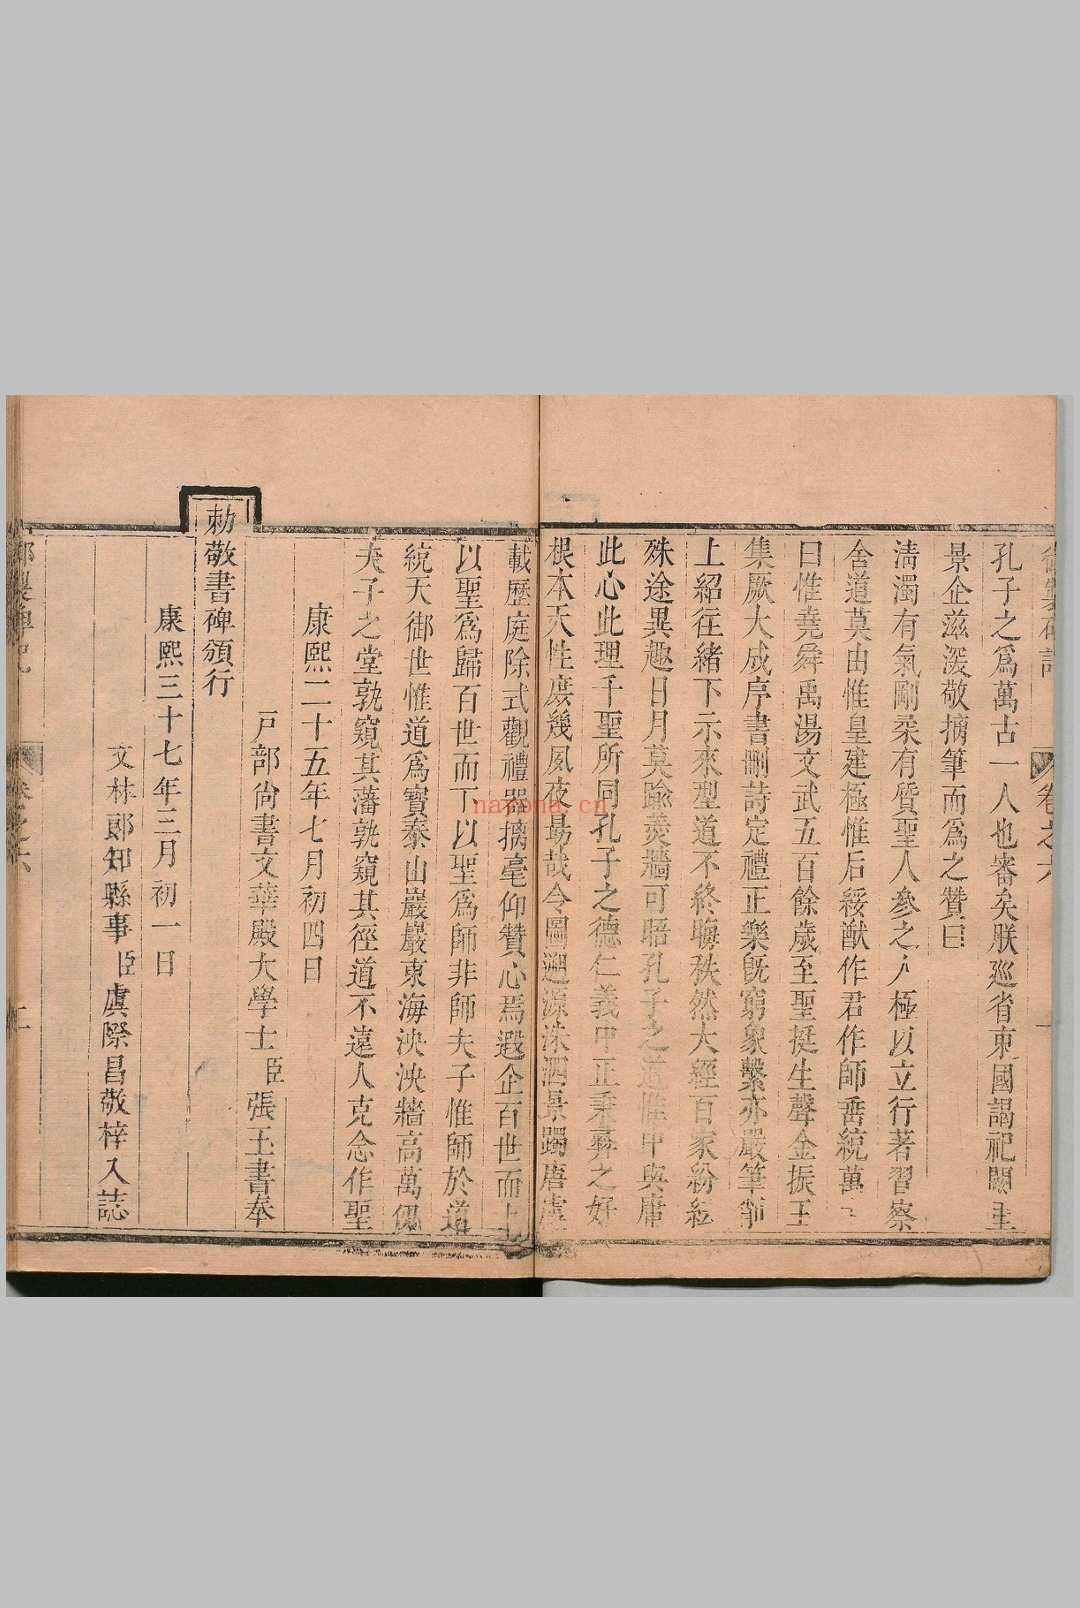 御製碑記 卷之六 一
孔子之爲萬古一人也審矣朕巡省東國謁祀闕里
景企滋深敬摛筆而爲之贊曰
淸濁有氣剛柔有質聖人參之人極以立行著習察
舍道莫由惟皇建極惟后綏猷作君作師垂統萬
曰惟堯舜禹湯文武五百餘歲至聖挺生聲金振玉
集厥大成序書刪詩定禮正樂旣窮象繫亦嚴筆削
上紹往緒下示來型道不終晦秩然大經百家紛紜
殊途異趣日月莫踰羹牆可晤孔子之道惟中與庸
此心此理千聖所同孔子之德仁義中正秉彝之好
根本天性庶幾夙夜勗哉令圖溯源洙泗景躅唐虞
載歷庭除式觀禮器摛毫仰贊心焉遐企百世而上
以聖爲歸百世而下以聖爲師非師夫子惟師於道
統天御世惟道爲寶泰山巖巖東海泱泱牆高萬仞
夫子之堂孰窺其藩孰窺其徑道不遠人克念作聖
康熙二十五年七月初四日
戸部尙書文華殿大學士臣張玉書奉
勅敬書碑頒行
康熙三十七年三月初一日
文林郞知縣事臣虞際昌敬梓入誌
御製碑記 卷之六
nayona.cn